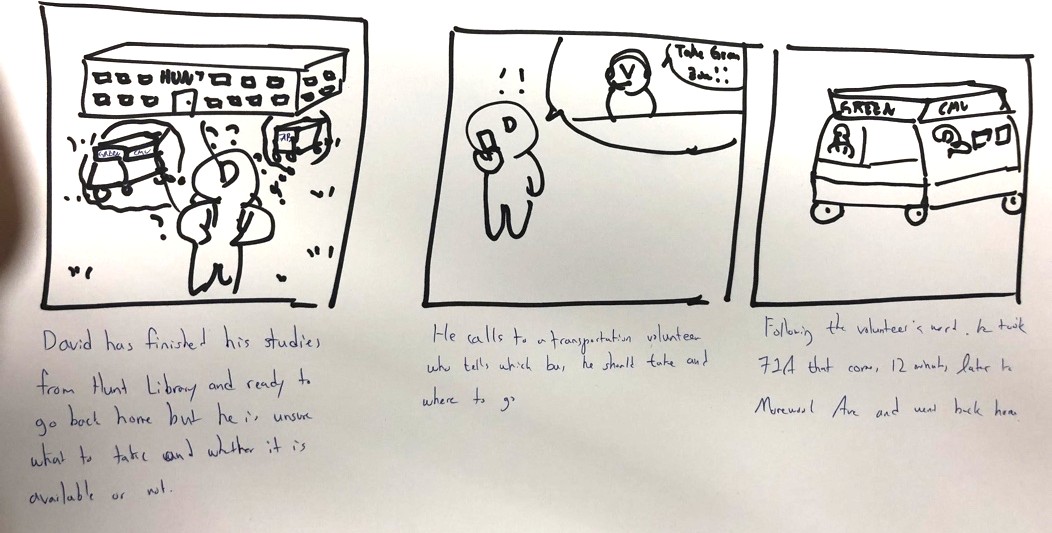 HUNT
GREEN CMU
D
? ?
71A
? ?
David has finished his studies
from Hunt Library and ready to
go back home but he is unsure
what to take and whether it is
available or not.
! !
D
V
Take Green
Bus!!
He calls to a transportation volunteer
who tells which bus he should take and
where to go
GREEN CMU
Following the volunteer's word, he took
71A that comes 12 minutes later to
Morewood Ave and went back home